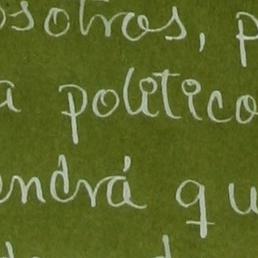 osotros, p
a político
endrá qu